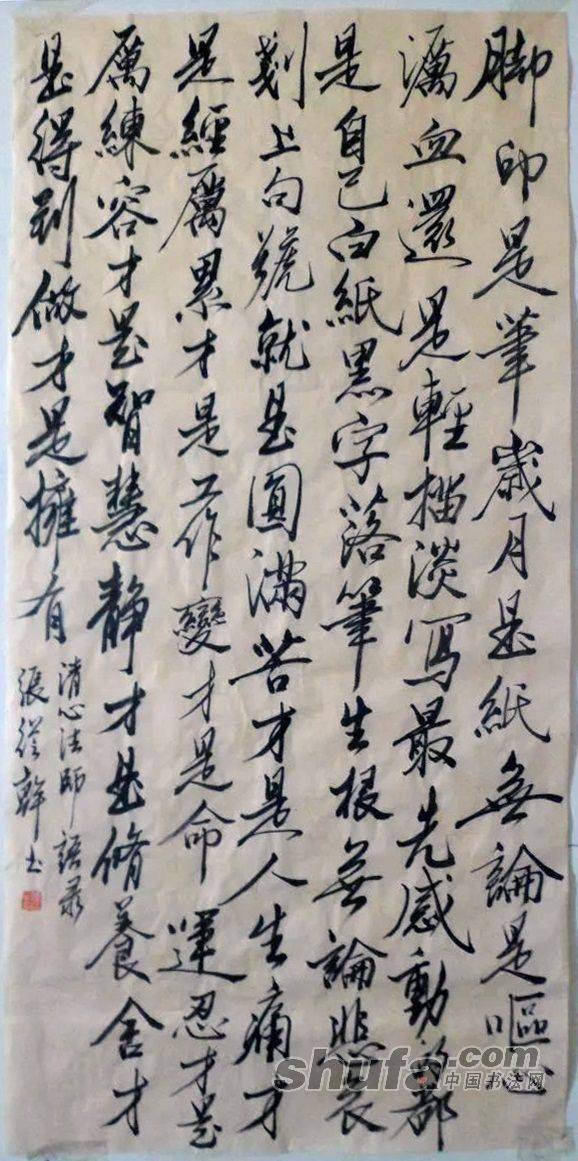 脚印是筆歲月是紙無論是嘔心
濿血還是輕描淡寫最先感動的都
是自己白紙黑字落筆生根無論悲哀
劃上句號就是圓滿苦才是人生痛才
是經厲累才是工作變才是命運忍才是
厲練容才是智慧靜才是脩養舍才
是得到做才是擁有
清心法師語录
張從幹书
shufa.com
中国书法网